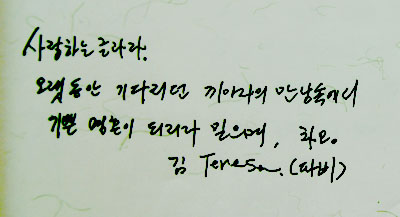 사랑하는 글라라.
오랫동안 기다리던 끼아라의 만남속에서
기쁜 영혼이 되리라 믿으며, 화요.
김 Teresa. (따비)